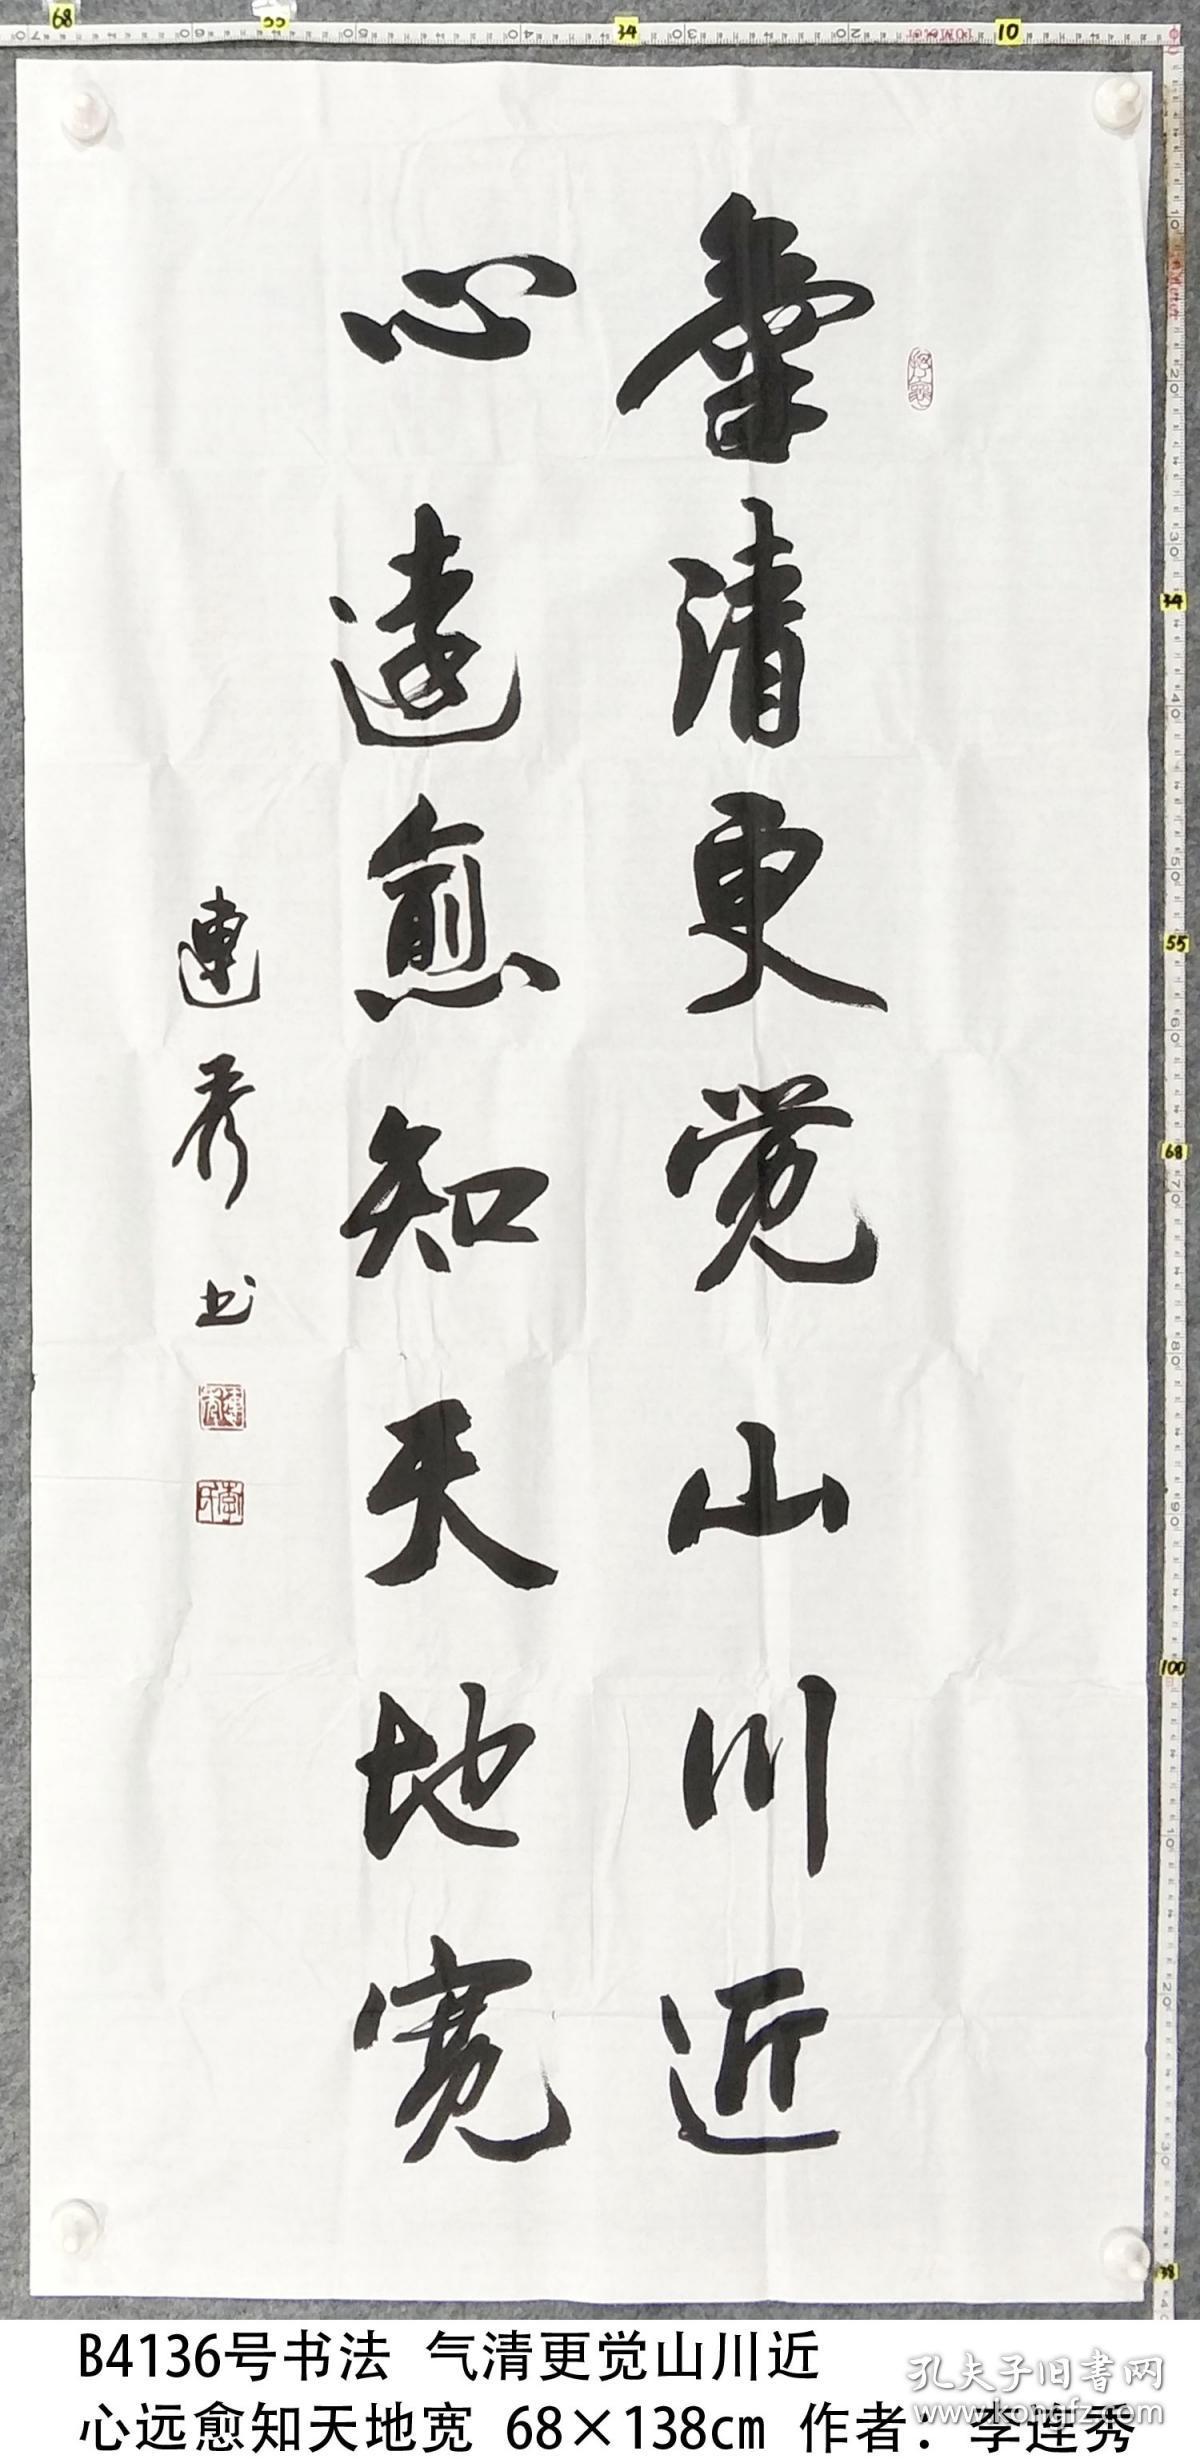 气清更觉山川近
心遠愈知天地宽
連秀书
B4136号书法 气清更觉山川近
心远愈知天地宽 68×138cm 作者：李连秀
孔夫子旧书网
www.kongfz.com